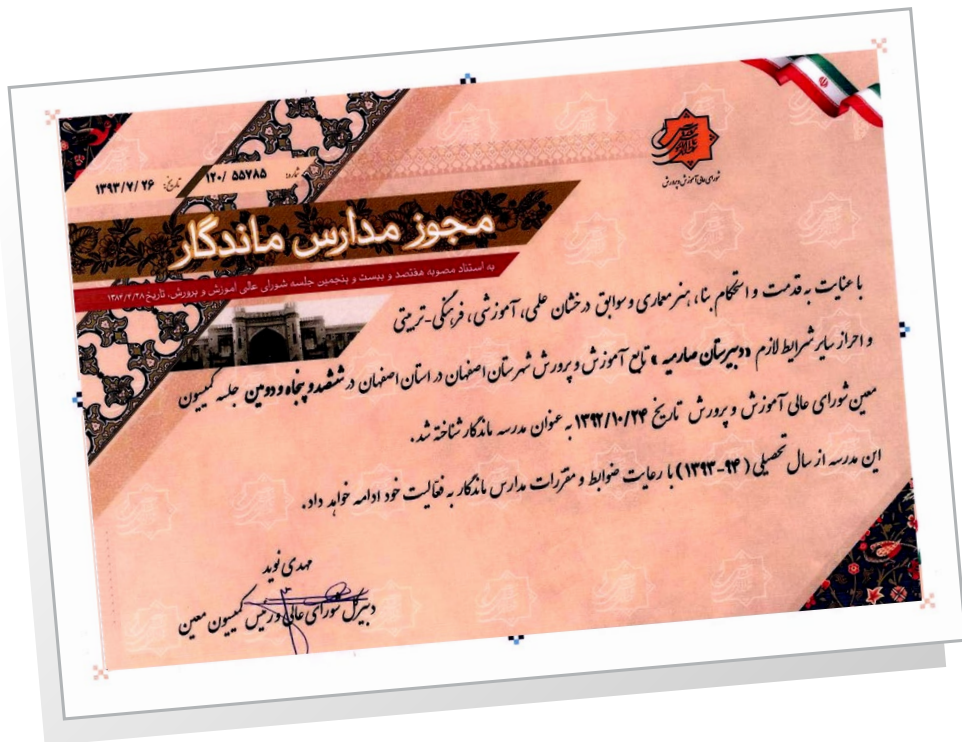 شورای عالی آموزش و پرورش
شماره: ۱۲۰/ ۵۵۷۸۵
تاریخ: ۱۳۹۳/۷/۲۶
مجوز مدارس ماندگار
به استناد مصوبه هفتصد و بیست و پنجمین جلسه شورای عالی آموزش و پرورش، تاریخ ۱۳۸۴/۴/۲۸
با عنایت به قدمت و استحکام بنا، هنر معماری و سوابق درخشان علمی، آموزشی، فرهنگی-تربیتی
و احراز سایر شرایط لازم «دبیرستان صارمیه» تابع آموزش و پرورش شهرستان اصفهان در استان اصفهان در ششصد و پنجاه و دومین جلسه کمیسیون
معین شورای عالی آموزش و پرورش تاریخ ۱۳۹۲/۱۰/۲۴ به عنوان مدرسه ماندگار شناخته شد.
این مدرسه از سال تحصیلی (۹۴-۱۳۹۳) با رعایت ضوابط و مقررات مدارس ماندگار به فعالیت خود ادامه خواهد داد.
مهدی نوید
دبیرکل شورای عالی و رئیس کمیسیون معین